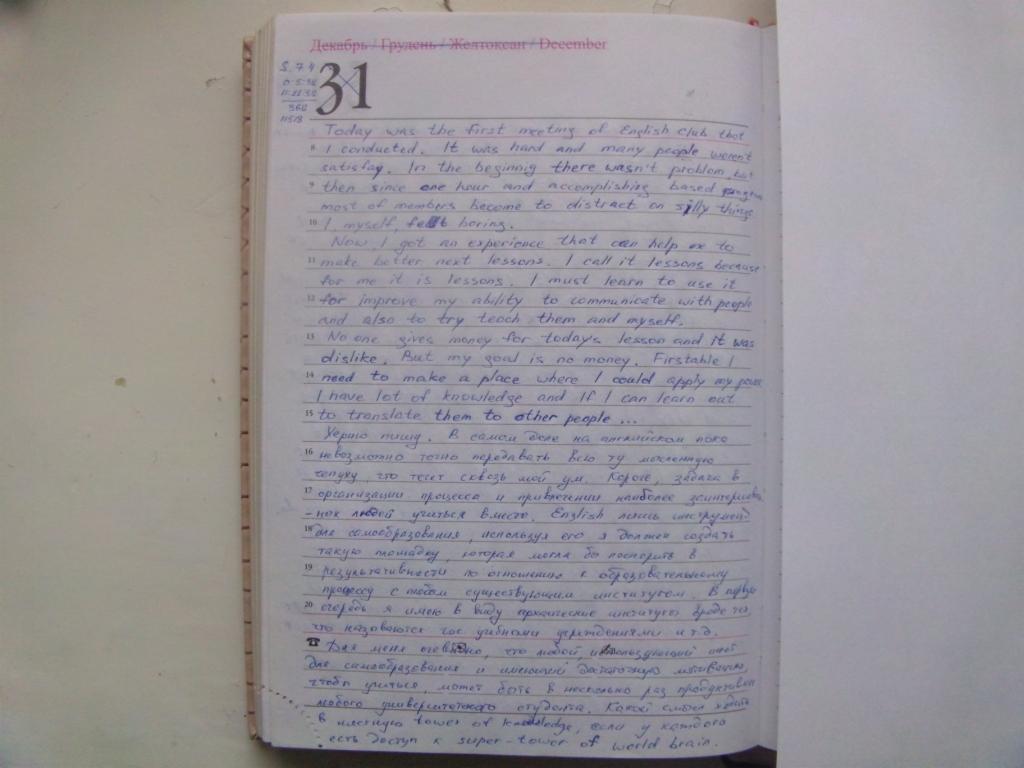 Декабрь / Грудень / Желтоксан / December
S. 7.4
31
Today was the first meeting of English club that
8 I conducted. It was hard and many people weren't
satisfay. In the beginnig there wasn't problem, but
9 then since one hour and accomplishing based program
most of members become to distract on silly things
10 I, myself, felt boring.
Now, I got an experience that can help me to
11 make better next lessons. I call it lessons because
for me it is lessons. I must learn to use it
12 for improve my ability to communicate with people
and also to try teach them and myself.
13 No one gives money for today's lesson and it was
dislike. But my goal is no money. Firstable I
14 need to make a place where I could apply my power
I have lot of knowledge and If I can learn out
15 to translate them to other people ...
Херню пишу. В самом деле на английском пока
16 невозможно точно передавать всю ту мысленную
чепуху, что течет сквозь мой ум. Короче, задача в
17 организации процесса и привлечении наиболее заинтересован
-ных людей учиться вместе. English лишь инструмент
18 для самообразования, используя его я должен создать
такую площадку, которая могла бы поспорить в
19 результативности по отношению к образовательному
процессу с любым существующим институтом. В первую
20 очередь я имею в виду архаические институты вроде тех,
что называются гос учебными учреждениями и т.д.
Для меня очевидно, что любой использующий инет
для самообразования и имеющий достаточную мотивацию,
чтобы учиться, может быть в несколько раз продуктивнее
любого университетского студента. Какой смысл ходить
в местную tower of knowledge, если у каждого
есть доступ к super-tower of world brain.